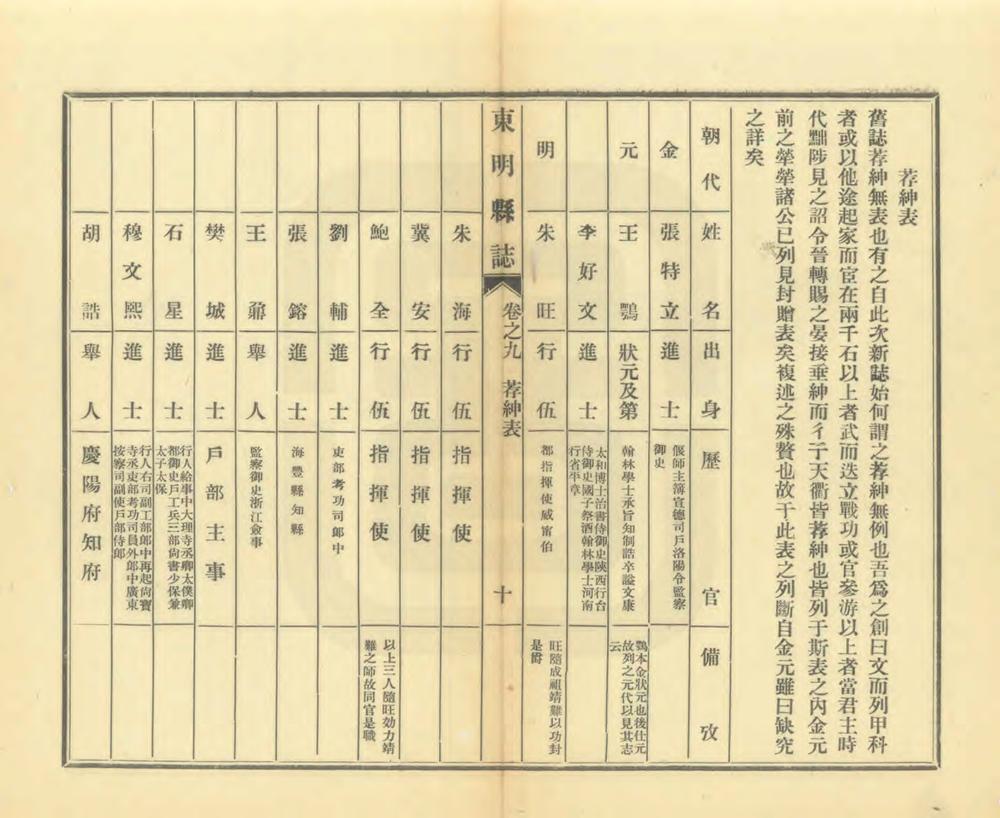 荐紳表
舊誌荐紳無表也有之自此次新誌始何謂之荐紳無例也吾爲之創曰文而列甲科
者或以他途起家而宦在兩千石以上者武而迭立戰功或官參游以上者當君主時
代黜陟見之詔令晉轉賜之晏接垂紳而彳亍天衢皆荐紳也皆列于斯表之內金元
前之犖犖諸公已列見封贈表矣複述之殊贅也故于此表之列斷自金元雖曰缺究
之詳矣
朝代
姓名
出身
歷官
備攷
金
張特立
進士
偃師主簿宣德司戶洛陽令監察
御史
元
王鶚
狀元及第
翰林學士承旨知制誥卒謚文康
鶚本金狀元也後仕元
故列之元代以見其志
云
李好文
進士
太和博士治書侍御史陝西行台
侍御史國子祭酒翰林學士河南
行省平章
明
朱旺
行伍
都指揮使威甯伯
旺隨成祖靖難以功封
是爵
東明縣誌
卷之九
荐紳表
十
朱海
行伍
指揮使
冀安
行伍
指揮使
鮑全
行伍
指揮使
以上三人隨旺効力靖
難之師故同官是職
劉輔
進士
吏部考功司郎中
張鎔
進士
海豐縣知縣
王鼐
舉人
監察御史浙江僉事
樊城
進士
戶部主事
石星
進士
行人給事中大理寺丞卿太僕卿
都御史戶工兵三部尙書少保兼
太子太保
穆文熙
進士
行人右司副工部郎中再起尙寶
寺丞吏部考功司員外郎中廣東
按察司副使戶部侍郎
胡誥
舉人
慶陽府知府